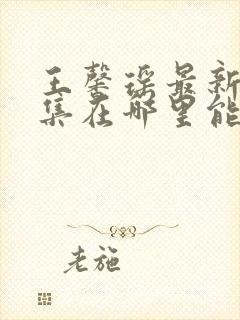 王馨瑶最新
集在哪里能
老施